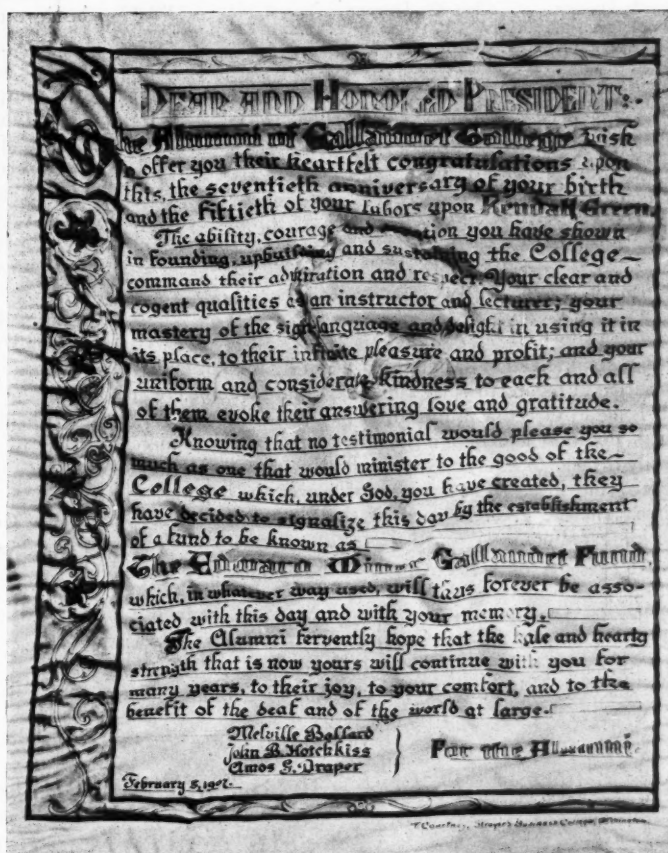 DEAR AND HONORED PRESIDENT:
The Alumni of Gallaudet College wish
to offer you their heartfelt congratulations upon
this, the seventieth anniversary of your birth
and the fiftieth of your labors upon Kendall Green.
The ability, courage and you have shown
in founding, upbuilding and sustaining the College
command their admiration and respect. Your clear and
cogent qualities as an instructor and lecturer; your
mastery of the sign-language and delight in using it in
its place, to their infinite pleasure and profit; and your
uniform and considerate kindness to each and all
of them evoke their answering love and gratitude.
Knowing that no testimonial would please you so
much as one that would minister to the good of the
College which, under God, you have created, they
have decided to signalize this day by the establishment
of a fund to be known as
The Edward Miner Gallaudet Fund,
which, in whatever way used, will thus forever be asso-
ciated with this day and with your memory.
The Alumni fervently hope that the hale and hearty
strength that is now yours will continue with you for
many years, to their joy, to your comfort, and to the
benefit of the deaf and of the world at large.
Melville Ballard
John B. Hotchkiss
Amos G. Draper
For the Alumni.
February 5, 1907.
Courtney, Strayer's Business College,